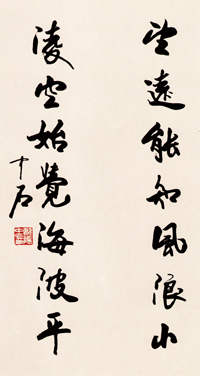 望远能知風浪小
凌空始覺海波平
中石